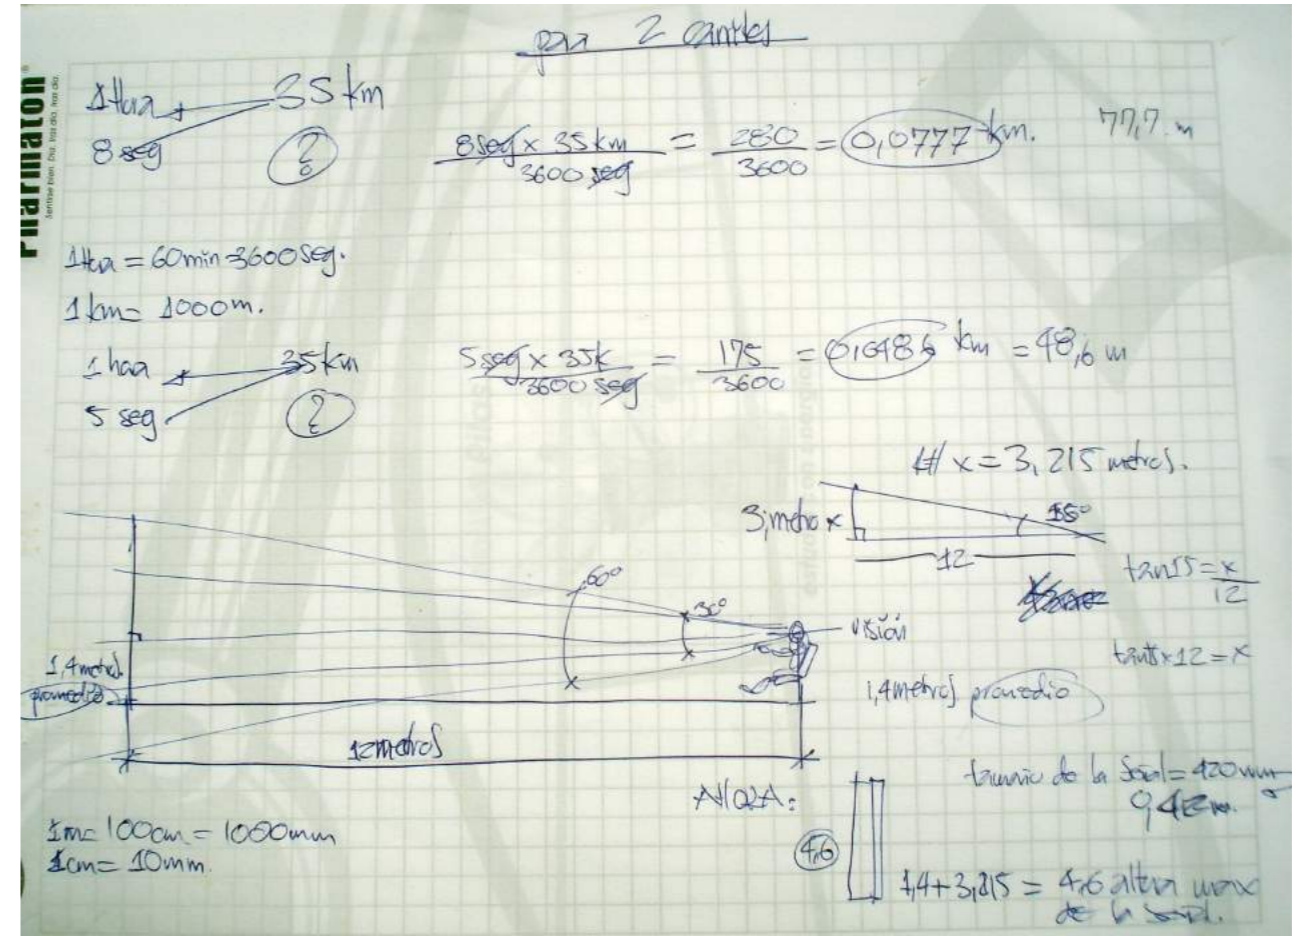 para 2 carriles
1 Hora 35 km
8 seg ?
8 seg x 35 km / 3600 seg = 280 / 3600 = 0,0777 km. 77,7 m
Pharmaton
1 Hora = 60 min = 3600 seg.
1 km = 1000 m.
1 hora 35 km
5 seg ?
5 seg x 35 k / 3600 seg = 175 / 3600 = 0,0486 km = 48,6 m
x = 3,215 metros.
3, metro x
15°
12
tan 15 = x / 12
tan 15 x 12 = x
60°
30°
visión
1,4 metros
promedio
1,4 metros promedio
12 metros
tamaño de la señal = 420 mm
NOTA:
4,6
1,4 + 3,215 = 4,6 altura max
de la señal.
1 m = 100 cm = 1000 mm
1 cm = 10 mm.